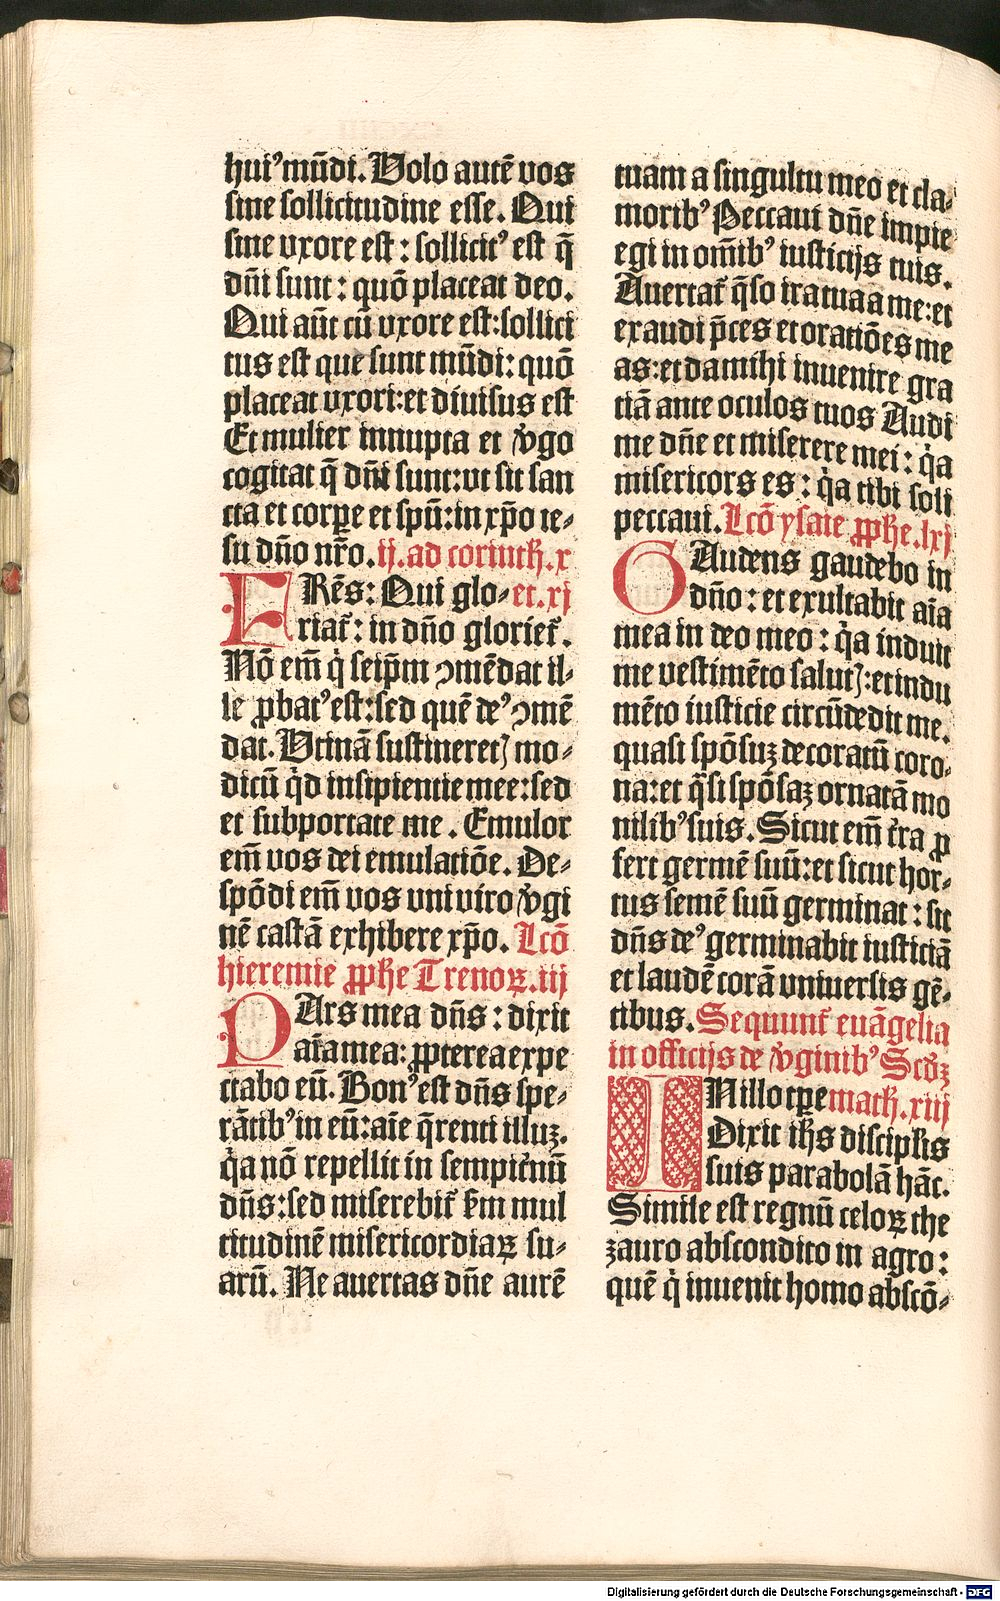 huiꝰ mūdi. Volo autē vos
sine sollicitudine esse. Qui
sine vxore est : sollicitꝰ est q̄
dn̄i sunt : quō placeat deo.
Qui aūt cū vxore est : sollici
tus est que sunt mūdi : quō
placeat vxori : et diuisus est
Et mulier innupta et v̓go
cogitat q̄ dn̄i sunt : vt sit san
cta et corꝑe et spū : in xp̄o ie⸗
su dn̄o nr̄o. ij. ad corinth. x
FRēs : Qui glo⸗ et. xj
riat᷑ : in dn̄o gloriet᷑.
Nō em̄ q̇ seip̄m ꝯmēdat il⸗
le ꝓbatꝰ est : sed quē deꝰ ꝯmē
dat. Vtinā sustineretꝭ mo⸗
dicū q̇d insipientie mee : sed
et subportate me. Emulor
em̄ vos dei emulatiōe. De⸗
spōdi em̄ vos vni viro v̓gi
nē castā exhibere xp̄o. Lcō
hieremie ꝓphe Trenoꝝ. iij
PArs mea dn̄s : dixit
aīa mea : ꝓpterea expe
ctabo eū. Bonꝰ est dn̄s spe⸗
rātibꝰ in eū : aīe q̄renti illuꝫ.
q̇a nō repellit in sempit᷑nū
dn̄s : sed miserebit᷑ ẜm mul
titudinē misericordiaꝝ su⸗
arū. Ne auertas dn̄e aurē
tuam a singultu meo et cla⸗
moribꝰ Peccaui dn̄e impie
egi in om̄ibꝰ iusticijs tuis.
Auertat᷑ q̄so ira tua a me : et
exaudi p̄ces et oratiōes me
as : et da mihi inuenire gra
tiā ante oculos tuos Audi
me dn̄e et miserere mei : q̇a
misericors es : q̇a tibi soli
peccaui. Lcō ysaie ꝓphe. lxj
GAudens gaudebo in
dn̄o : et exultabit aīa
mea in deo meo : q̇a induit
me vestimēto salutꝭ : et indu
mēto iusticie circūdedit me.
quasi spōsuꝫ decoratū coro⸗
na : et q̄si spōsaꝫ ornatā mo
nilibꝰ suis. Sicut em̄ t᷑ra ꝓ
fert germē suū : et sicut hor⸗
tus semē suū germinat : sic
dn̄s deꝰ germinabit iusticiā
et laudē corā vniuersis gē⸗
tibus. Sequunt᷑ euāgelia
in officijs de v̓ginibꝰ Scd̄ꝫ
IN illo tꝑe math. xiij
Dixit ih̄s discipl̄is
suis parabolā hāc.
Simile est regnū celoꝝ the
zauro abscondito in agro :
quē q̇ inuenit homo abscō⸗
Digitalisierung gefördert durch die Deutsche Forschungsgemeinschaft - DFG